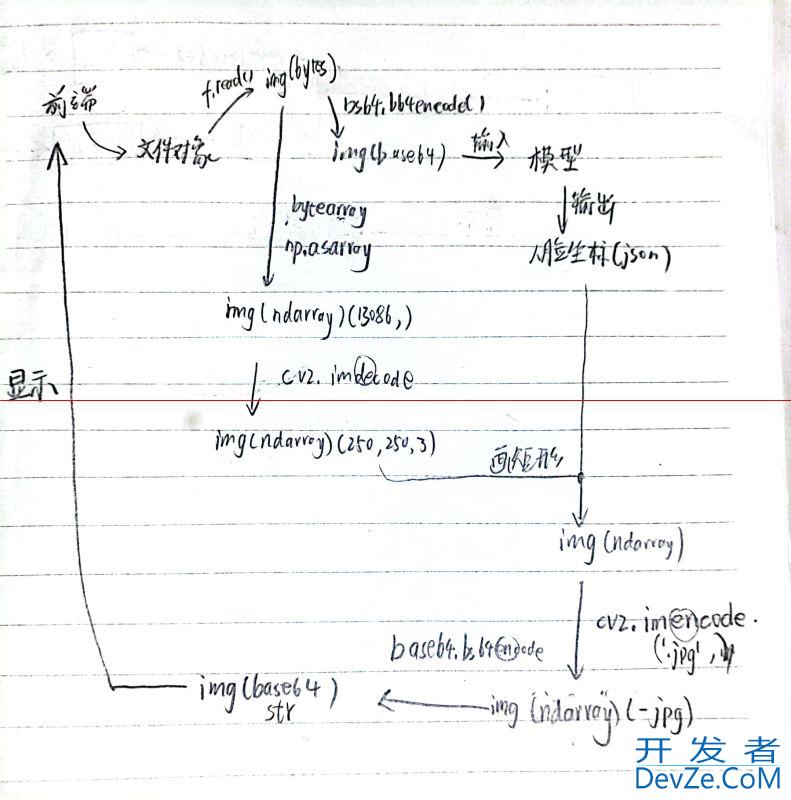 前端
文件对象
f.read()
img(bytes)
bs64.bb4encode()
img(base64)
输入
模型
输出
人脸坐标(json)
.bytearray
np.asarray
img(ndarray)(13086,)
cv2.imdecode
img(ndarray)(250,250,3)
画矩形
img(ndarray)
cv2.imencode.
('.jpg',
img(ndarray)(-jpg)
base64.bs64encode
img(base64)
str
显示
开发者
DevZe.CoM